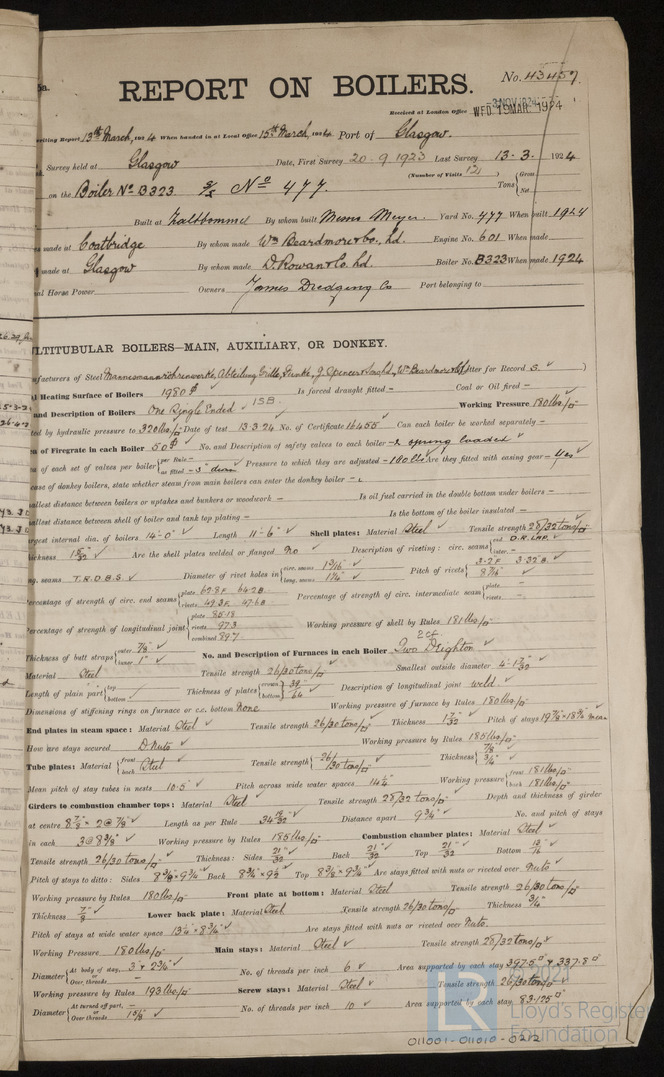 5a.
REPORT ON BOILERS.
No. 43457
Received at London Office WED 19 MAR 1924
writing Report 13th March, 1924 When handed in at Local Office 15th March, 1924 Port of Glasgow.
Survey held at Glasgow Date, First Survey 20.9.1923 Last Survey 13-3. 1924
(Number of Visits 12)
on the Boiler No B323 S/S No 477 Tons Gross Net
Built at Zaltbommel By whom built Messrs Meyer. Yard No. 477 When built 1924
made at Coatbridge By whom made Wm Beardmore & Co., Ld. Engine No. 601 When made
made at Glasgow By whom made D. Rowan & Co. Ld. Boiler No. B323 When made 1924
Horse Power Owners James Dredging Co Port belonging to
MULTITUBULAR BOILERS—MAIN, AUXILIARY, OR DONKEY.
Manufacturers of Steel Mannesmannröhrenwerke, Abteilung J. Spencer & Sons Ld, Wm Beardmore (Letter for Record S.)
Heating Surface of Boilers 1980 Is forced draught fitted - Coal or Oil fired -
and Description of Boilers One Single Ended 1SB. Working Pressure 180 lbs/□"
by hydraulic pressure to 320 lbs/□" Date of test 13.3.24 No. of Certificate 16455 Can each boiler be worked separately -
of Firegrate in each Boiler 50 No. and Description of safety valves to each boiler 2 spring loaded
of each set of valves per boiler per Rule - as fitted - 3" diam Pressure to which they are adjusted - 180 lbs Are they fitted with easing gear - Yes
case of donkey boilers, state whether steam from main boilers can enter the donkey boiler -
smallest distance between boilers or uptakes and bunkers or woodwork - Is oil fuel carried in the double bottom under boilers -
smallest distance between shell of boiler and tank top plating - Is the bottom of the boiler insulated -
largest internal dia. of boilers 14'-0" Length 11'-6" Shell plates: Material Steel Tensile strength 28/32 tons/□"
Thickness 1 5/32 Are the shell plates welded or flanged No Description of riveting: circ. seams end D.R. LAP.
long. seams T.R.D.B.S Diameter of rivet holes in circ. seams 1 3/16" long. seams 1 1/4" Pitch of rivets 3.2 F 3.32 B 8 7/16"
Percentage of strength of circ. end seams plate 62.8 F 64.2 B rivets 49.3 F 47.6 B Percentage of strength of circ. intermediate seam plate - rivets -
Percentage of strength of longitudinal joint plate 85.18 rivets 97.3 combined 89.7 Working pressure of shell by Rules 181 lbs/□"
Thickness of butt straps outer 7/8" inner 1" No. and Description of Furnaces in each Boiler 2 CF. Two Deighton
Material Steel Tensile strength 26/30 tons/□" Smallest outside diameter 4'-1 17/32
Length of plain part top bottom Thickness of plates crown bottom 39/64 Description of longitudinal joint weld
Dimensions of stiffening rings on furnace or c.c. bottom None Working pressure of furnace by Rules 180 lbs/□"
End plates in steam space: Material Steel Tensile strength 26/30 tons/□" Thickness 1 7/32 Pitch of stays 19 7/8" × 18 7/8" mean
How are stays secured D. Nuts Working pressure by Rules 185 lbs/□"
Tube plates: Material front back Steel Tensile strength 26/30 tons/□" Thickness 7/8" 3/4"
Mean pitch of stay tubes in nests 10.5" Pitch across wide water spaces 14 1/4" Working pressure front 181 lbs/□" back 181 lbs/□"
Girders to combustion chamber tops: Material Steel Tensile strength 28/32 tons/□" Depth and thickness of girder
at centre 8 7/8" × 2 @ 7/8" Length as per Rule 34 Distance apart 9 3/4" No. and pitch of stays
in each 3 @ 8 3/8" Working pressure by Rules 185 lbs/□" Combustion chamber plates: Material Steel
Tensile strength 26/30 tons/□" Thickness: Sides 21/32 Back 21/32 Top 21/32 Bottom 13/16"
Pitch of stays to ditto: Sides 8 3/8" × 9 3/4" Back 8 3/4" × 9 1/2" Top 8 3/8" × 9 3/4" Are stays fitted with nuts or riveted over Nuts
Working pressure by Rules 180 lbs/□" Front plate at bottom: Material Steel Tensile strength 26/30 tons/□"
Thickness 7/8" Lower back plate: Material Steel Tensile strength 26/30 tons/□" Thickness 3/4"
Pitch of stays at wide water space 13 1/4" × 8 3/4" Are stays fitted with nuts or riveted over Nuts.
Working Pressure 180 lbs/□" Main stays: Material Steel Tensile strength 28/32 tons/□"
Diameter At body of stay, 3" × 2 3/4" or Over threads - No. of threads per inch 6 Area supported by each stay 397.5□" × 337.8□"
Working pressure by Rules 193 lbs/□" Screw stays: Material Steel Tensile strength 26/30 tons/□"
Diameter At turned off part, - or Over threads 1 5/8" No. of threads per inch 10 Area supported by each stay 83.125□"
LR
Lloyd's Register
Foundation
011001-011010-0212